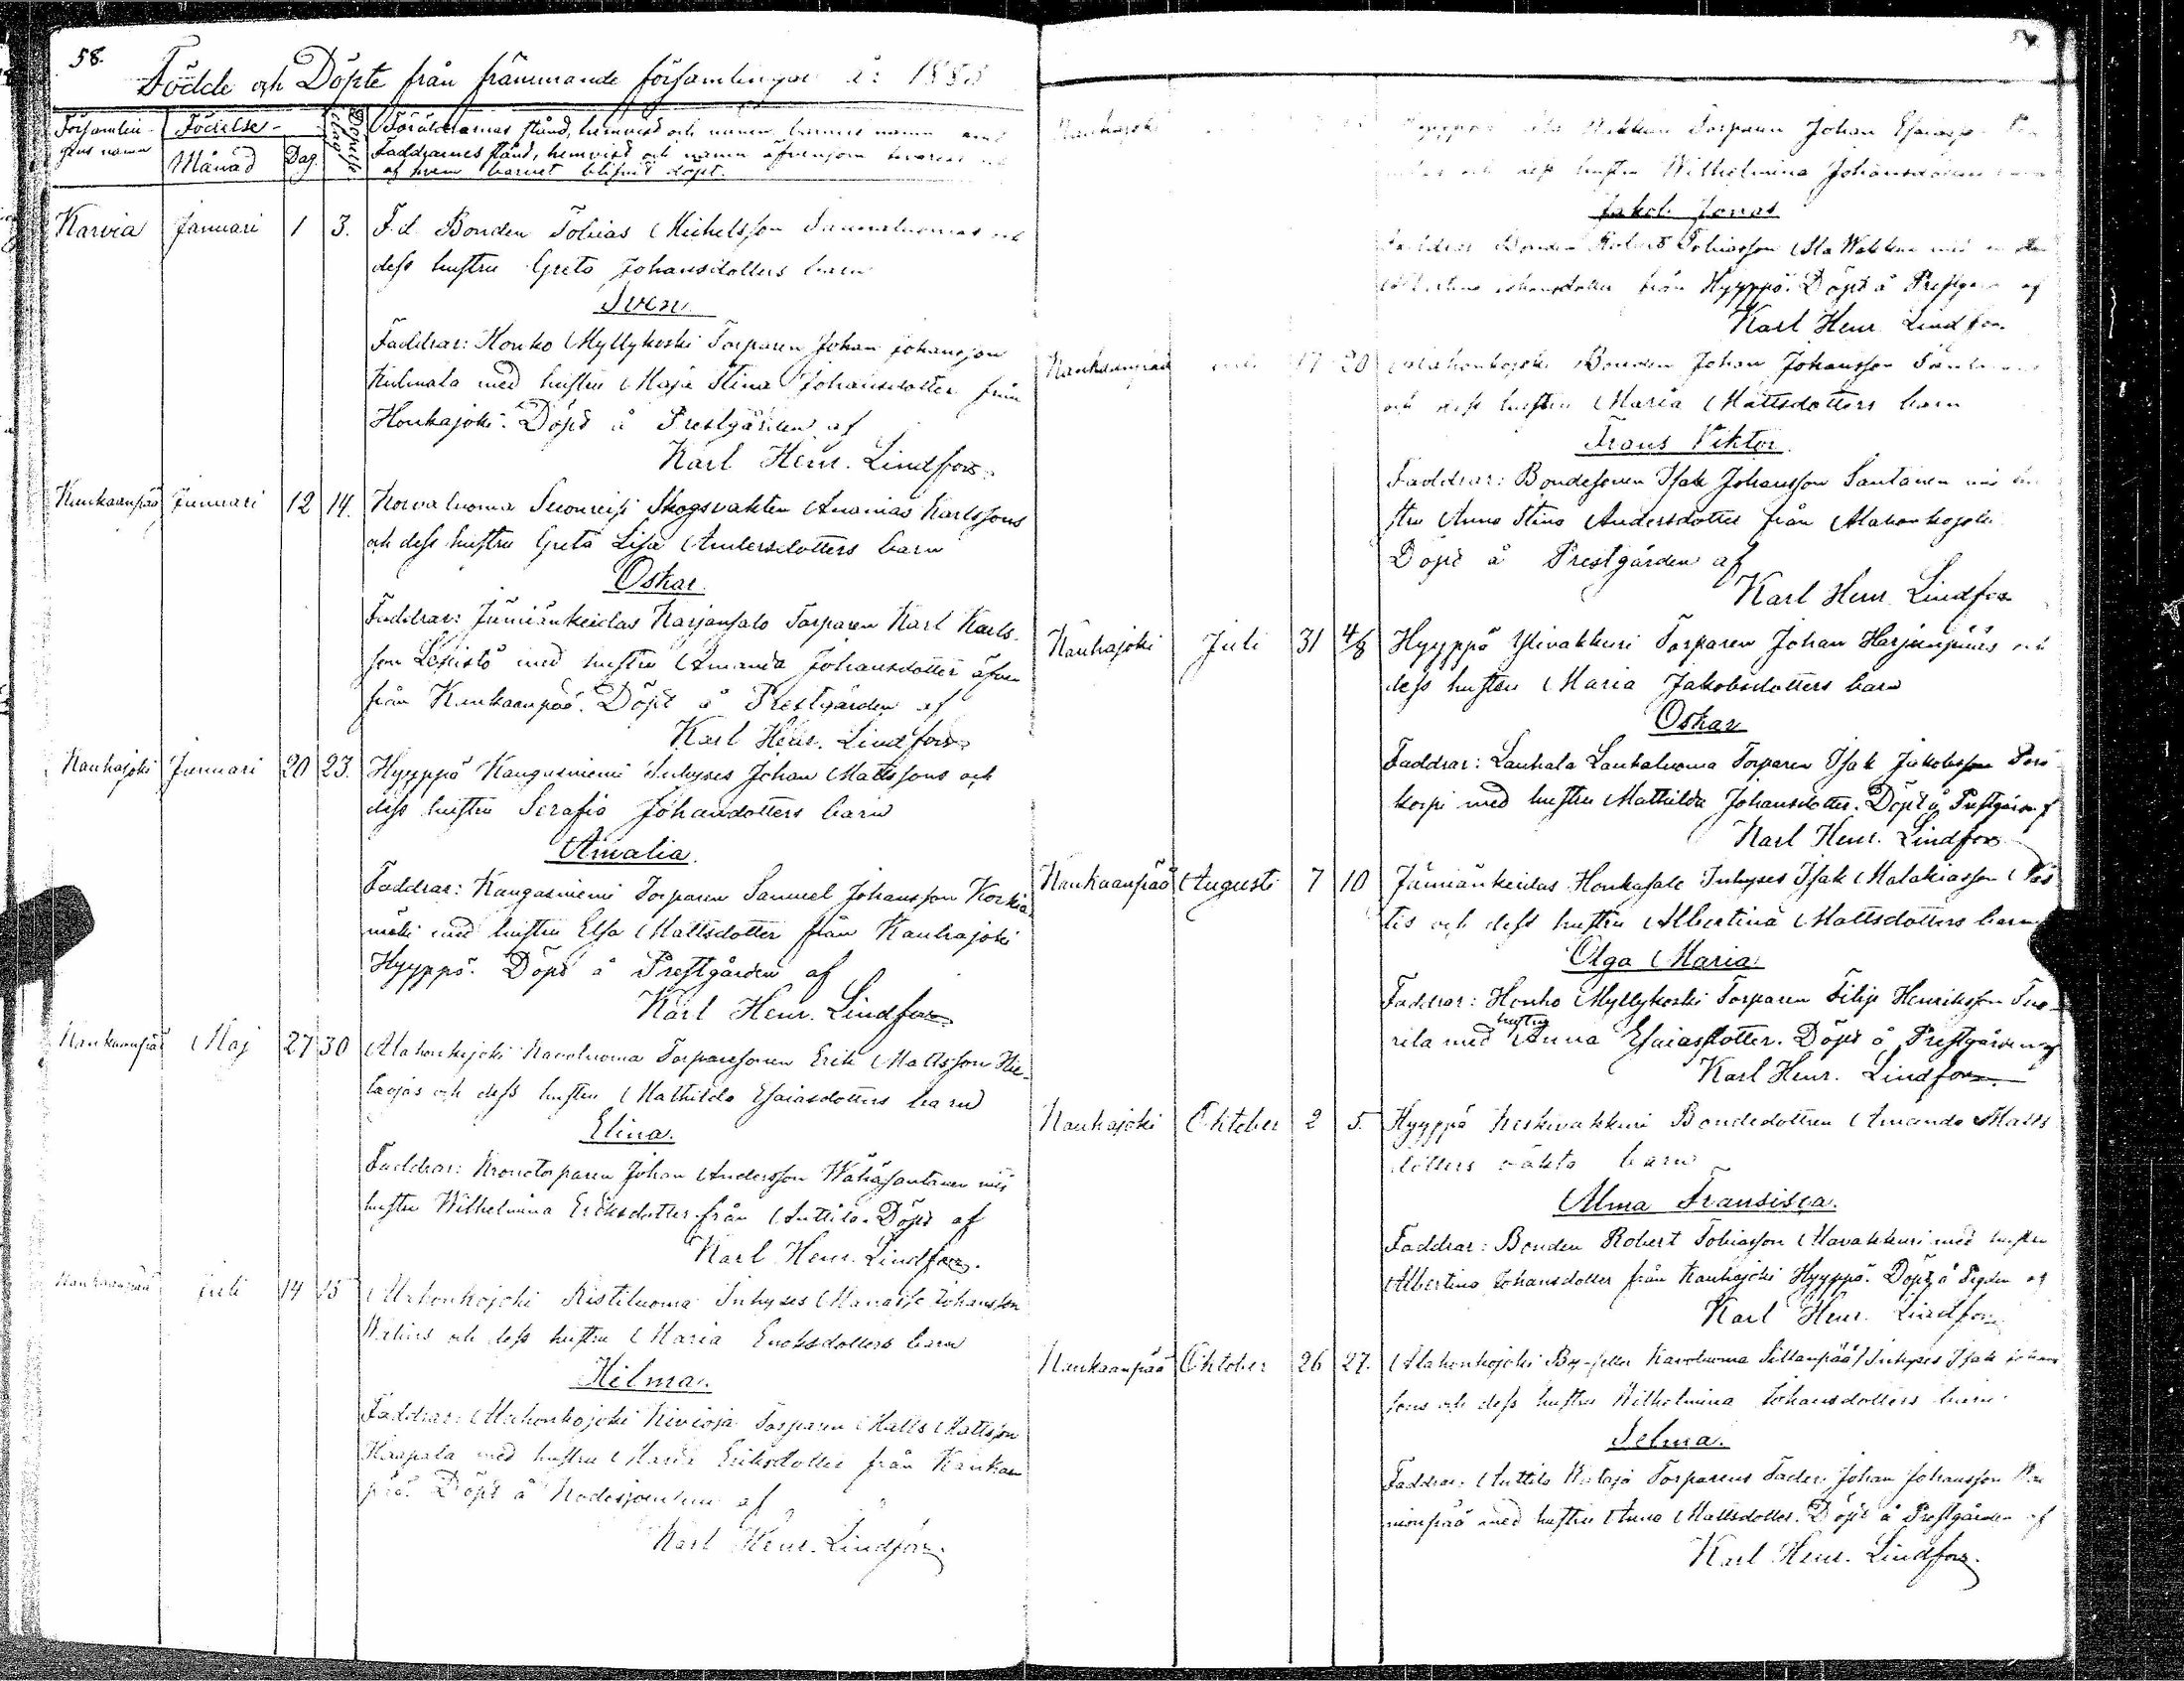 58.
Födde och Döpte från främmande församlingar år 188
Församlin- Födelse- Dopelse
gens namn Månad Dag. dag
Föräldrarnes stånd, hemvist och namn, barnets namn samt
Faddrarnes stånd, hemvist och namn äfvensom
af hvem barnet blifvit döpt.
Karvia Januari 1 3. F.d. Bonden Tobias Michelsson och
dess hustru Greta Johansdotters barn
Sven.
Faddrar: Honko Myllykoski Torparen Johan Johansson
Kulmala med hustru Maja Stina Johansdotter från
Honkajoki. Döpt å Prestgården af
Karl Henr. Lindfors.
Kankaanpää Januari 12 14. Korvaluoma Skogsvakten Ananias Karlssons
och dess hustru Greta Lisa Andersdotters barn
Oskar.
Faddrar: Jämiänkeidas Karjansalo Torparen Karl Karls-
son Lepistö med hustru Amanda Johansdotter äfven
från Kankaanpää. Döpt å Prestgården af
Karl Henr. Lindfors.
Kauhajoki Januari 20 23. Hyyppä Kangasniemi Inhyses Johan Mattssons och
dess hustru Serafia Johansdotters barn
Amalia.
Faddrar: Kangasniemi Torparen Samuel Johansson Korkia-
mäki med hustru Elsa Mattsdotter från Kauhajoki
Hyyppä. Döpt å Prestgården af
Karl Henr. Lindfors.
Kankaanpää Maj 27 30 Alahonkajoki Torparesonen Erik Mattsson Hie-
taojas och dess hustru Mathilda Esaiasdotters barn
Elina.
Faddrar: Kronotorparen Johan Andersson Wähäsantanen med
hustru Wilhelmina Eriksdotter från Anttila. Döpt af
Karl Henr. Lindfors.
Kankaanpää Juli 14 15 Alahonkajoki Ristiluoma Inhyses Manasse Johansson
och dess hustru Maria Enoksdotters barn
Hilma.
Faddrar: Alahonkajoki Kivioja Torparen Matts Mattsson
Haapala med hustru Maria Eriksdotter från Kankaan
pää. Döpt å af
Karl Henr. Lindfors.
Kauhajoki Hyyppä Torparen Johan
och dess hustru Wilhelmina Johansdotters
Jakob Jonas
Faddrar Bonden Robert Tobiasson med
Albertina Johansdotter från Hyyppä. Döpt å Prestgården af
Karl Henr. Lindfors.
Kankaanpää 17 20 Alahonkajoki Bonden Johan Johansson
och dess hustru Maria Mattsdotters barn
Frans Viktor.
Faddrar: Bondesonen Isak Johansson Santanen med hu-
stru Anna Stina Andersdotter från Alahonkajoki
Döpt å Prestgården af
Karl Henr. Lindfors
Kauhajoki Juli 31 4/8 Hyyppä Ylivakkuri Torparen Johan Harjunpääs och
dess hustru Maria Jakobsdotters barn
Oskar
Faddrar: Lauhala Lauhaluoma Torparen Isak Jakobsson
korpi med hustru Mathilda Johansdotter. Döpt å Prestgården af
Karl Henr. Lindfors
Kankaanpää Augusti 7 10 Jämiänkeidas Honkasalo Inhyses Isak Malakiasson
tis och dess hustru Albertina Mattsdotters barn
Olga Maria.
Faddrar: Honko Myllykoski Torparen Filip Henriksson Tuo-
rila med hustru Anna Esaiasdotter. Döpt å Prestgården af
Karl Henr. Lindfors.
Kauhajoki Oktober 2 5. Hyyppä Keskivakkuri Bondedottren Amanda Matts
dotters oäkta barn
Alma Fransisca.
Faddrar: Bonden Robert Tobiasson Alavakkuri med hustru
Albertina Johansdotter från Kauhajoki Hyyppä. Döpt å Pgden af
Karl Henr. Lindfors
Kankaanpää Oktober 26 27. Alahonkajoki By Sillanpää Inhyses Isak Johans
sons och dess hustru Wilhelmina Johansdotters barn
Selma.
Faddrar: Anttila Torparens Fader Johan Johansson
med hustru Anna Mattsdotter. Döpt å Prestgården af
Karl Henr. Lindfors.